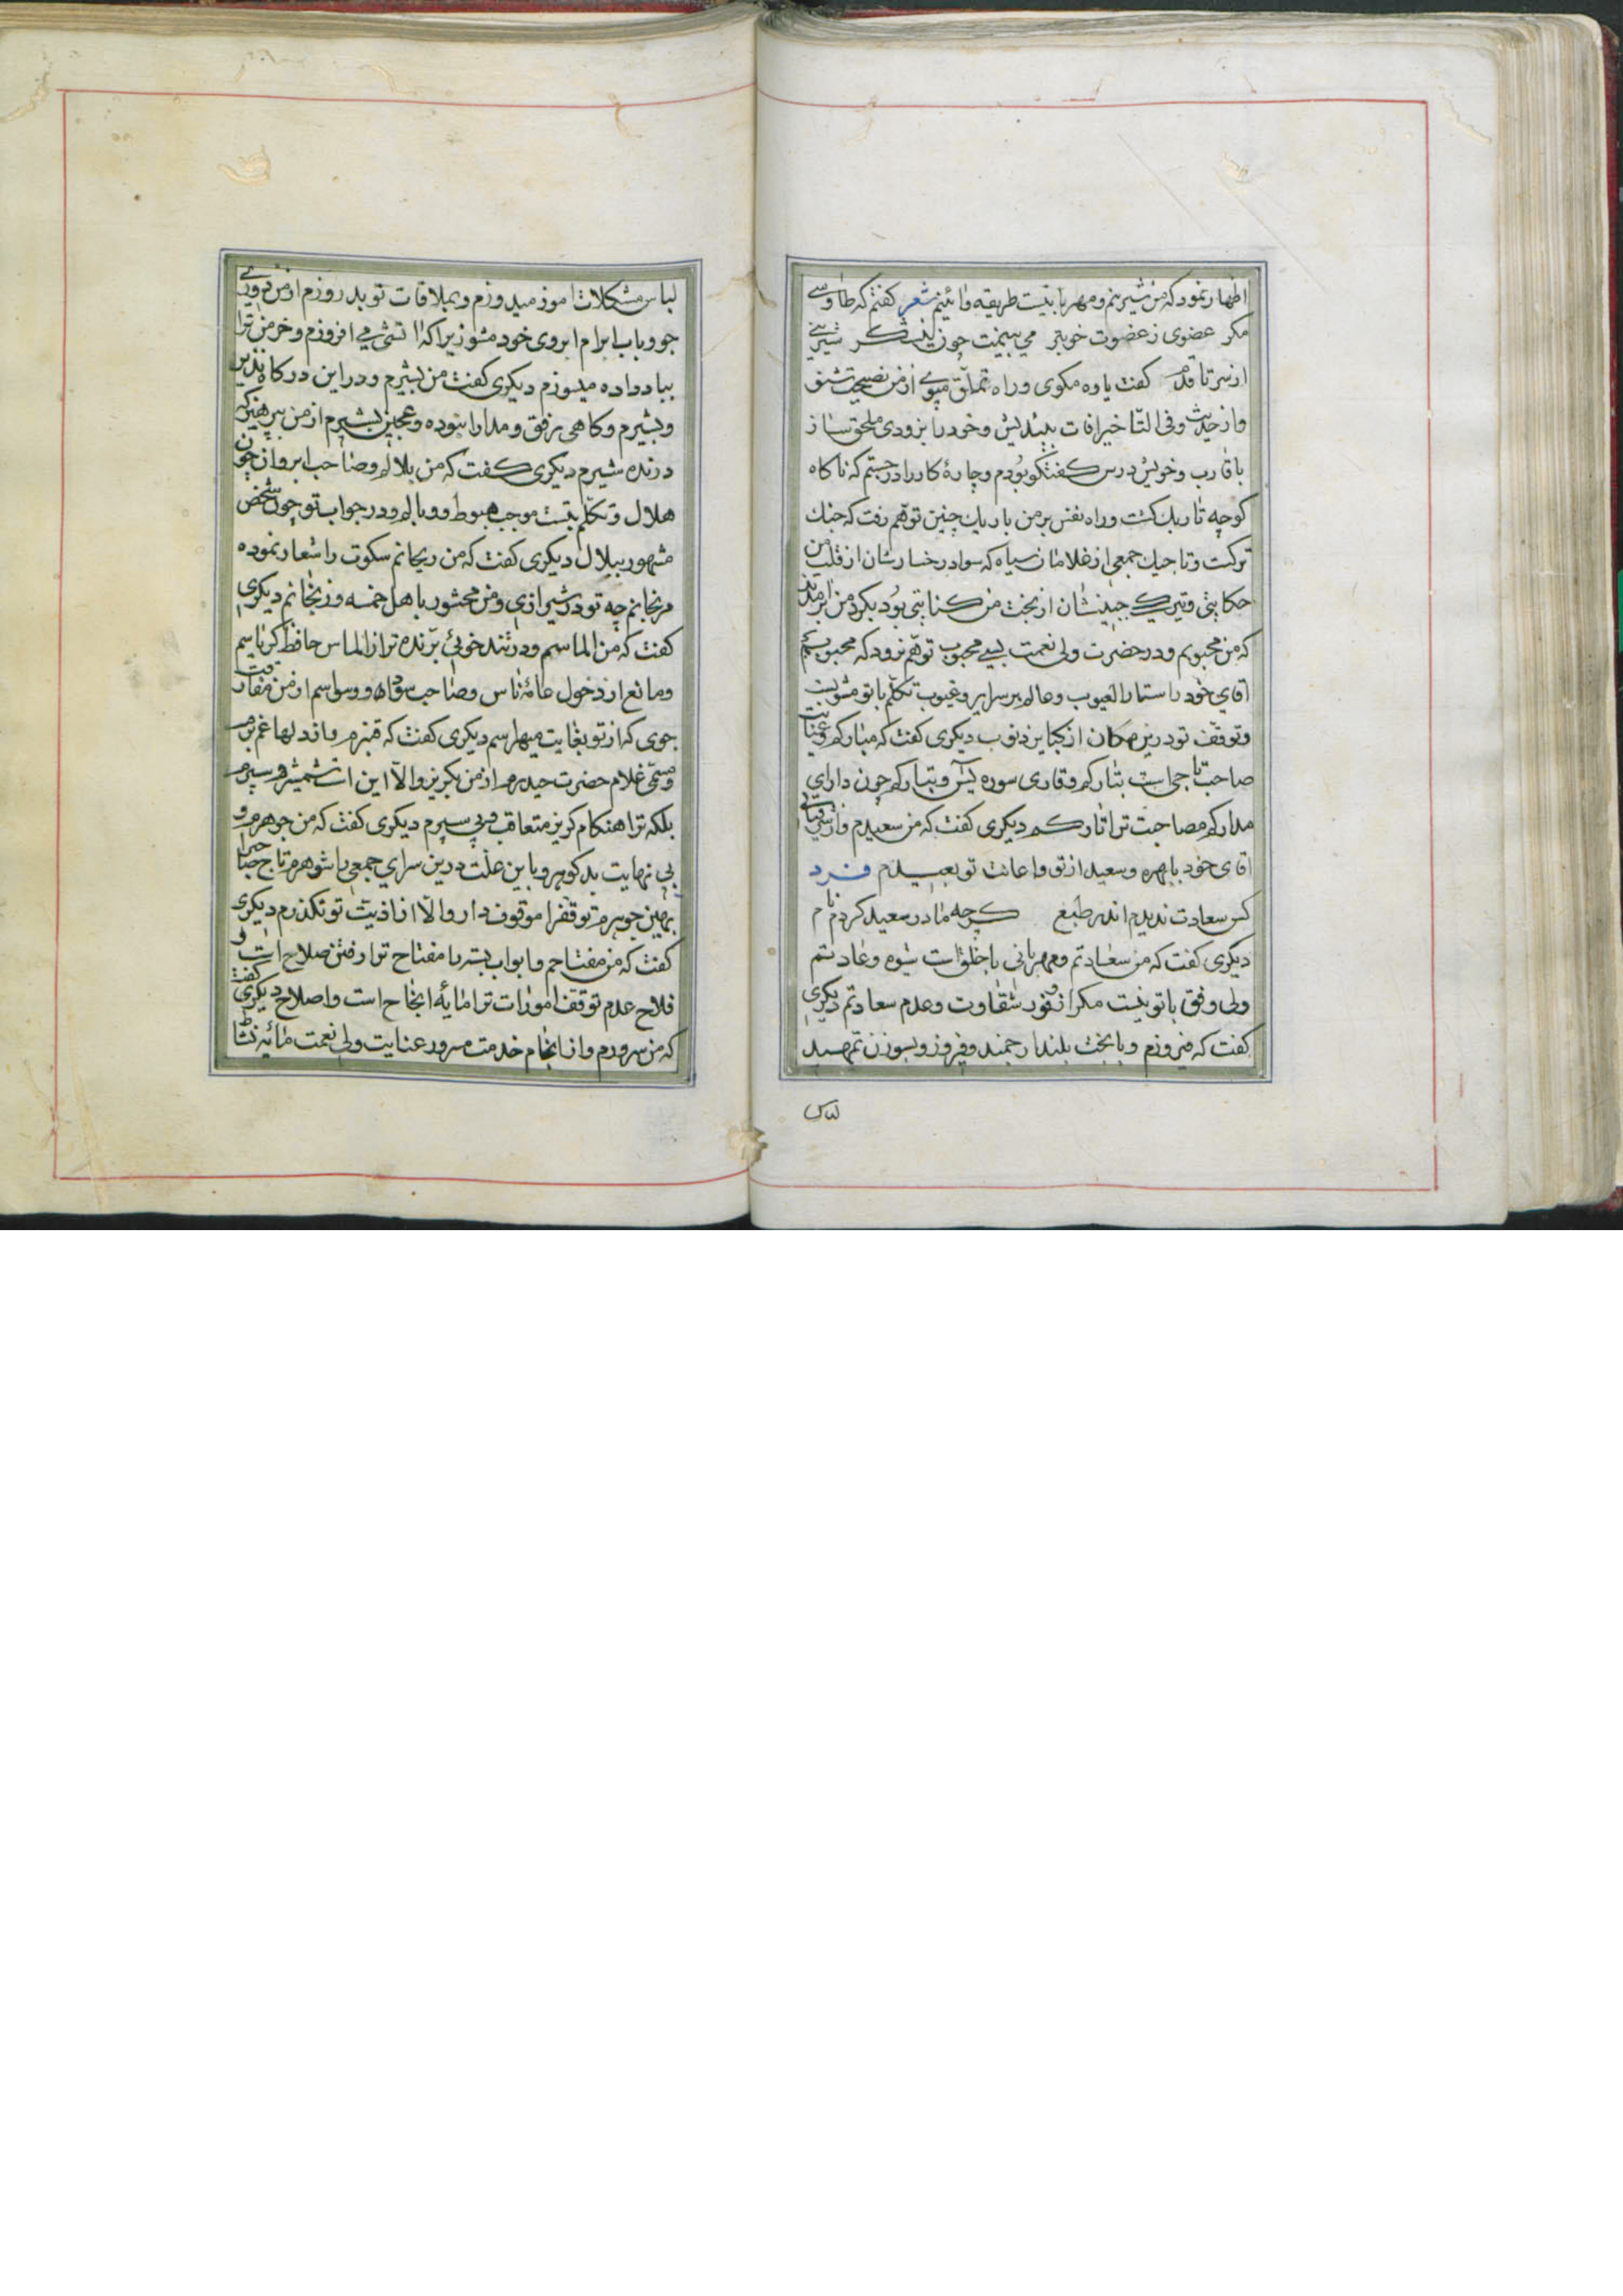 اظهار نمود که من شیرینم و مهربانیت طریقه و آئینم شعر گفتم که طاوسی
مکر عضوی زعضوت خوبتر می بینمت چون نیشکر شیرینی
از سر تا قدم کفت یاوه مکوی و راه تملّق مپوی از من نصیحت بشنو
واز حدیث وفی التاخیر افات بیندیش وخود را بزودی ملحق ساز
باقارب وخویش درس گفتگو بودم و چارهٔ کار را درجستم که ناکاه
کوچه تاریک کشت وراه نفس بر من باریک چنین توهّم رفت که جنك
ترکست وتاجیك جمعی از غلامان سیاه که سواد رخسارشان از قلب من
حکایتی وتیرکی جبینشان از بخت من کنایتی بود بکرد من برآمدند
که من محبوبم ودر حضرت ولی نعمت بسی محبوب توهّم نرود که محبوبم
اقای خود را ستار العیوب وعالم بر سرایر وغیوب تکلّم با تو مشوبست
وتوقّف تو درین مکان از کبایر ذنوب دیکری کفت که مبارکم وعنایت
صاحب تاجی است بتارکم وقاری سوره یسٓ وتبارکم چون دارای
مدارکم مصاحبت ترا تارکم دیکری کفت که من سعیدم واز
اقای خود با بهره وسعید از تو واعانت تو بعیدم فرد
کس سعادت ندیدم اندر طبع کرچه مادر سعید کردم نام
دیکری کفت که من سعادتم ومهربانی با خلق است شیوه وعادتم
ولی وفق با تو نیست مکر از وفور شقاوت وعدم سعادتم دیکری
کفت که فیروزم وبا بخت بلند ارجمند وفیروز وبسوزن تمهید
لباس
لباس مشکلات امور میدوزم وبملاقات تو بد روزم از من دوری
جو وباب ابرام ابروی خود مشو زیرا که اتشی می افروزم وخرمن ترا
بباد داده میسوزم دیکری کفت من بشیرم ودر این درکاه نذیر
وبشیرم وکاهی برفق ومدارا نبوده وعجین بشیرم از من بپرهیز که
درنده شیرم دیکری کفت که من بلالم وصاحب ابروان چون
هلال وتکلّم بتست موجب هبوط ووبالم ودر جواب تو چون شخص
مشهور ببلال دیکری کفت که من ریحانم سکوت را شعار نموده
مرنجانم چه تو در شیرازی ومن محشور با هل خمسه وزنجانم دیکری
کفت که من الماسم ودر تند خوئی برّنده تر از الماس حافظ کریاسم
ومانع از دخول عامّهٔ ناس وصاحب وسواسم از من مفارقت
جوی که از تو بغایت میهراسم دیکری کفت که قنبرم واز دلها غم برم
ومسمّی غلام حضرت حیدرم از من بکریز والّا این است شمشیر وسپرم
بلکه ترا هنکام کریز متعاقب وپی سپرم دیکری کفت که من جوهرم و
بی نهایت بد کوهر وباین علّت درین سرای جمعی را شوهرم تاج
بهمین جوهرم توقّف را موقوف دار والّا از اذیّت تو نکذرم دیکری
کفت که من مفتاحم وابواب بسته را مفتاح ترا رفتن صلاح است و
فلاح عدم توقف امورات ترا مایهٔ انجاح است واصلاح دیکری کفت
که من سرورم واز انجام خدمت مسرور عنایت ولی نعمت مایهٔ